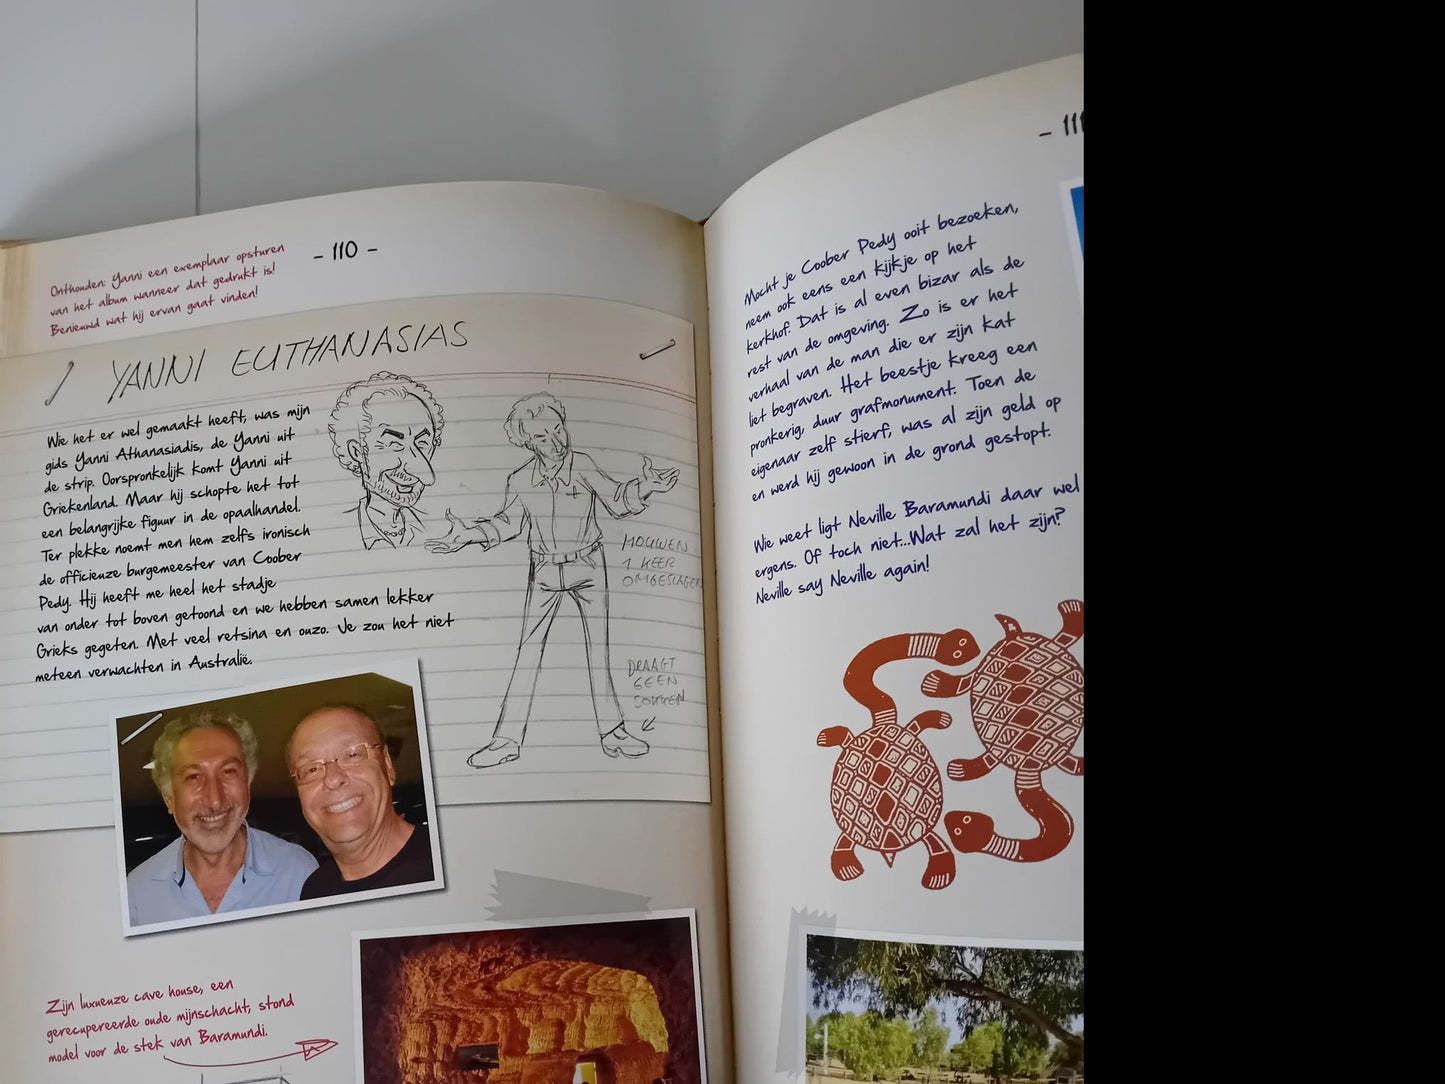 Onthouden: Yanni een exemplaar opsturen
van het album wanneer dat gedrukt is!
Benieuwd wat hij ervan gaat vinden!
- 110 -
YANNI EUTHANASIAS
Wie het er wel gemaakt heeft, was mijn
gids Yanni Athanasiadis, de Yanni uit
de strip. Oorspronkelijk komt Yanni uit
Griekenland. Maar hij schopte het tot
een belangrijke figuur in de opaalhandel.
Ter plekke noemt men hem zelfs ironisch
de officieuze burgemeester van Coober
Pedy. Hij heeft me heel het stadje
van onder tot boven getoond en we hebben samen lekker
Grieks gegeten. Met veel retsina en ouzo. Je zou het niet
meteen verwachten in Australië.
MOUWEN
1 KEER
OMGESLAGEN
DRAAGT
GEEN
SOKKEN
Zijn luxueuze cave house, een
gerecupereerde oude mijnschacht, stond
model voor de stek van Baramundi.
- 111
Mocht je Coober Pedy ooit bezoeken,
neem ook eens een kijkje op het
kerkhof. Dat is al even bizar als de
rest van de omgeving. Zo is er het
verhaal van de man die er zijn kat
liet begraven. Het beestje kreeg een
pronkerig, duur grafmonument. Toen de
eigenaar zelf stierf, was al zijn geld op
en werd hij gewoon in de grond gestopt.
Wie weet ligt Neville Baramundi daar wel
ergens. Of toch niet...Wat zal het zijn?
Neville say Neville again!